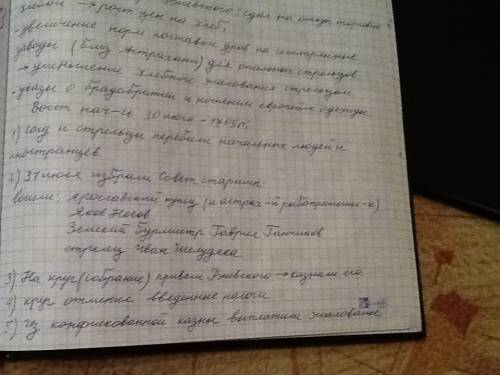 хлебом → рост цен на хлеб;
- увеличение норм поставки дров на селитряные
заводы (близ Астрахани) для опальных стрельцов
→ уменьшение хлебного жалования стрельцам
- указы о брадобритии и ношении европейск одежды
Восст нач-сь 30 июля - 1705г.
1) и стрельцы перебили начальных людей и
иностранцев
2) 31 июля избрали Совет старшин:
вошли: ярославский купец (и астрах-й рыбопромышл-к)
Яков Носов
Земский бурмистр Гаврила Ганчиков
стрелец Иван Шелудяк
3) На круг (собрание) привели Ржевского → казнили его
4) круг отменил введенные налоги
5) Из конфискованной казны выплатили жалованье